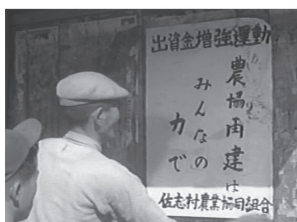 出資金増強運動
農協再建は
みんなの
力で
佐志村農業協同組合